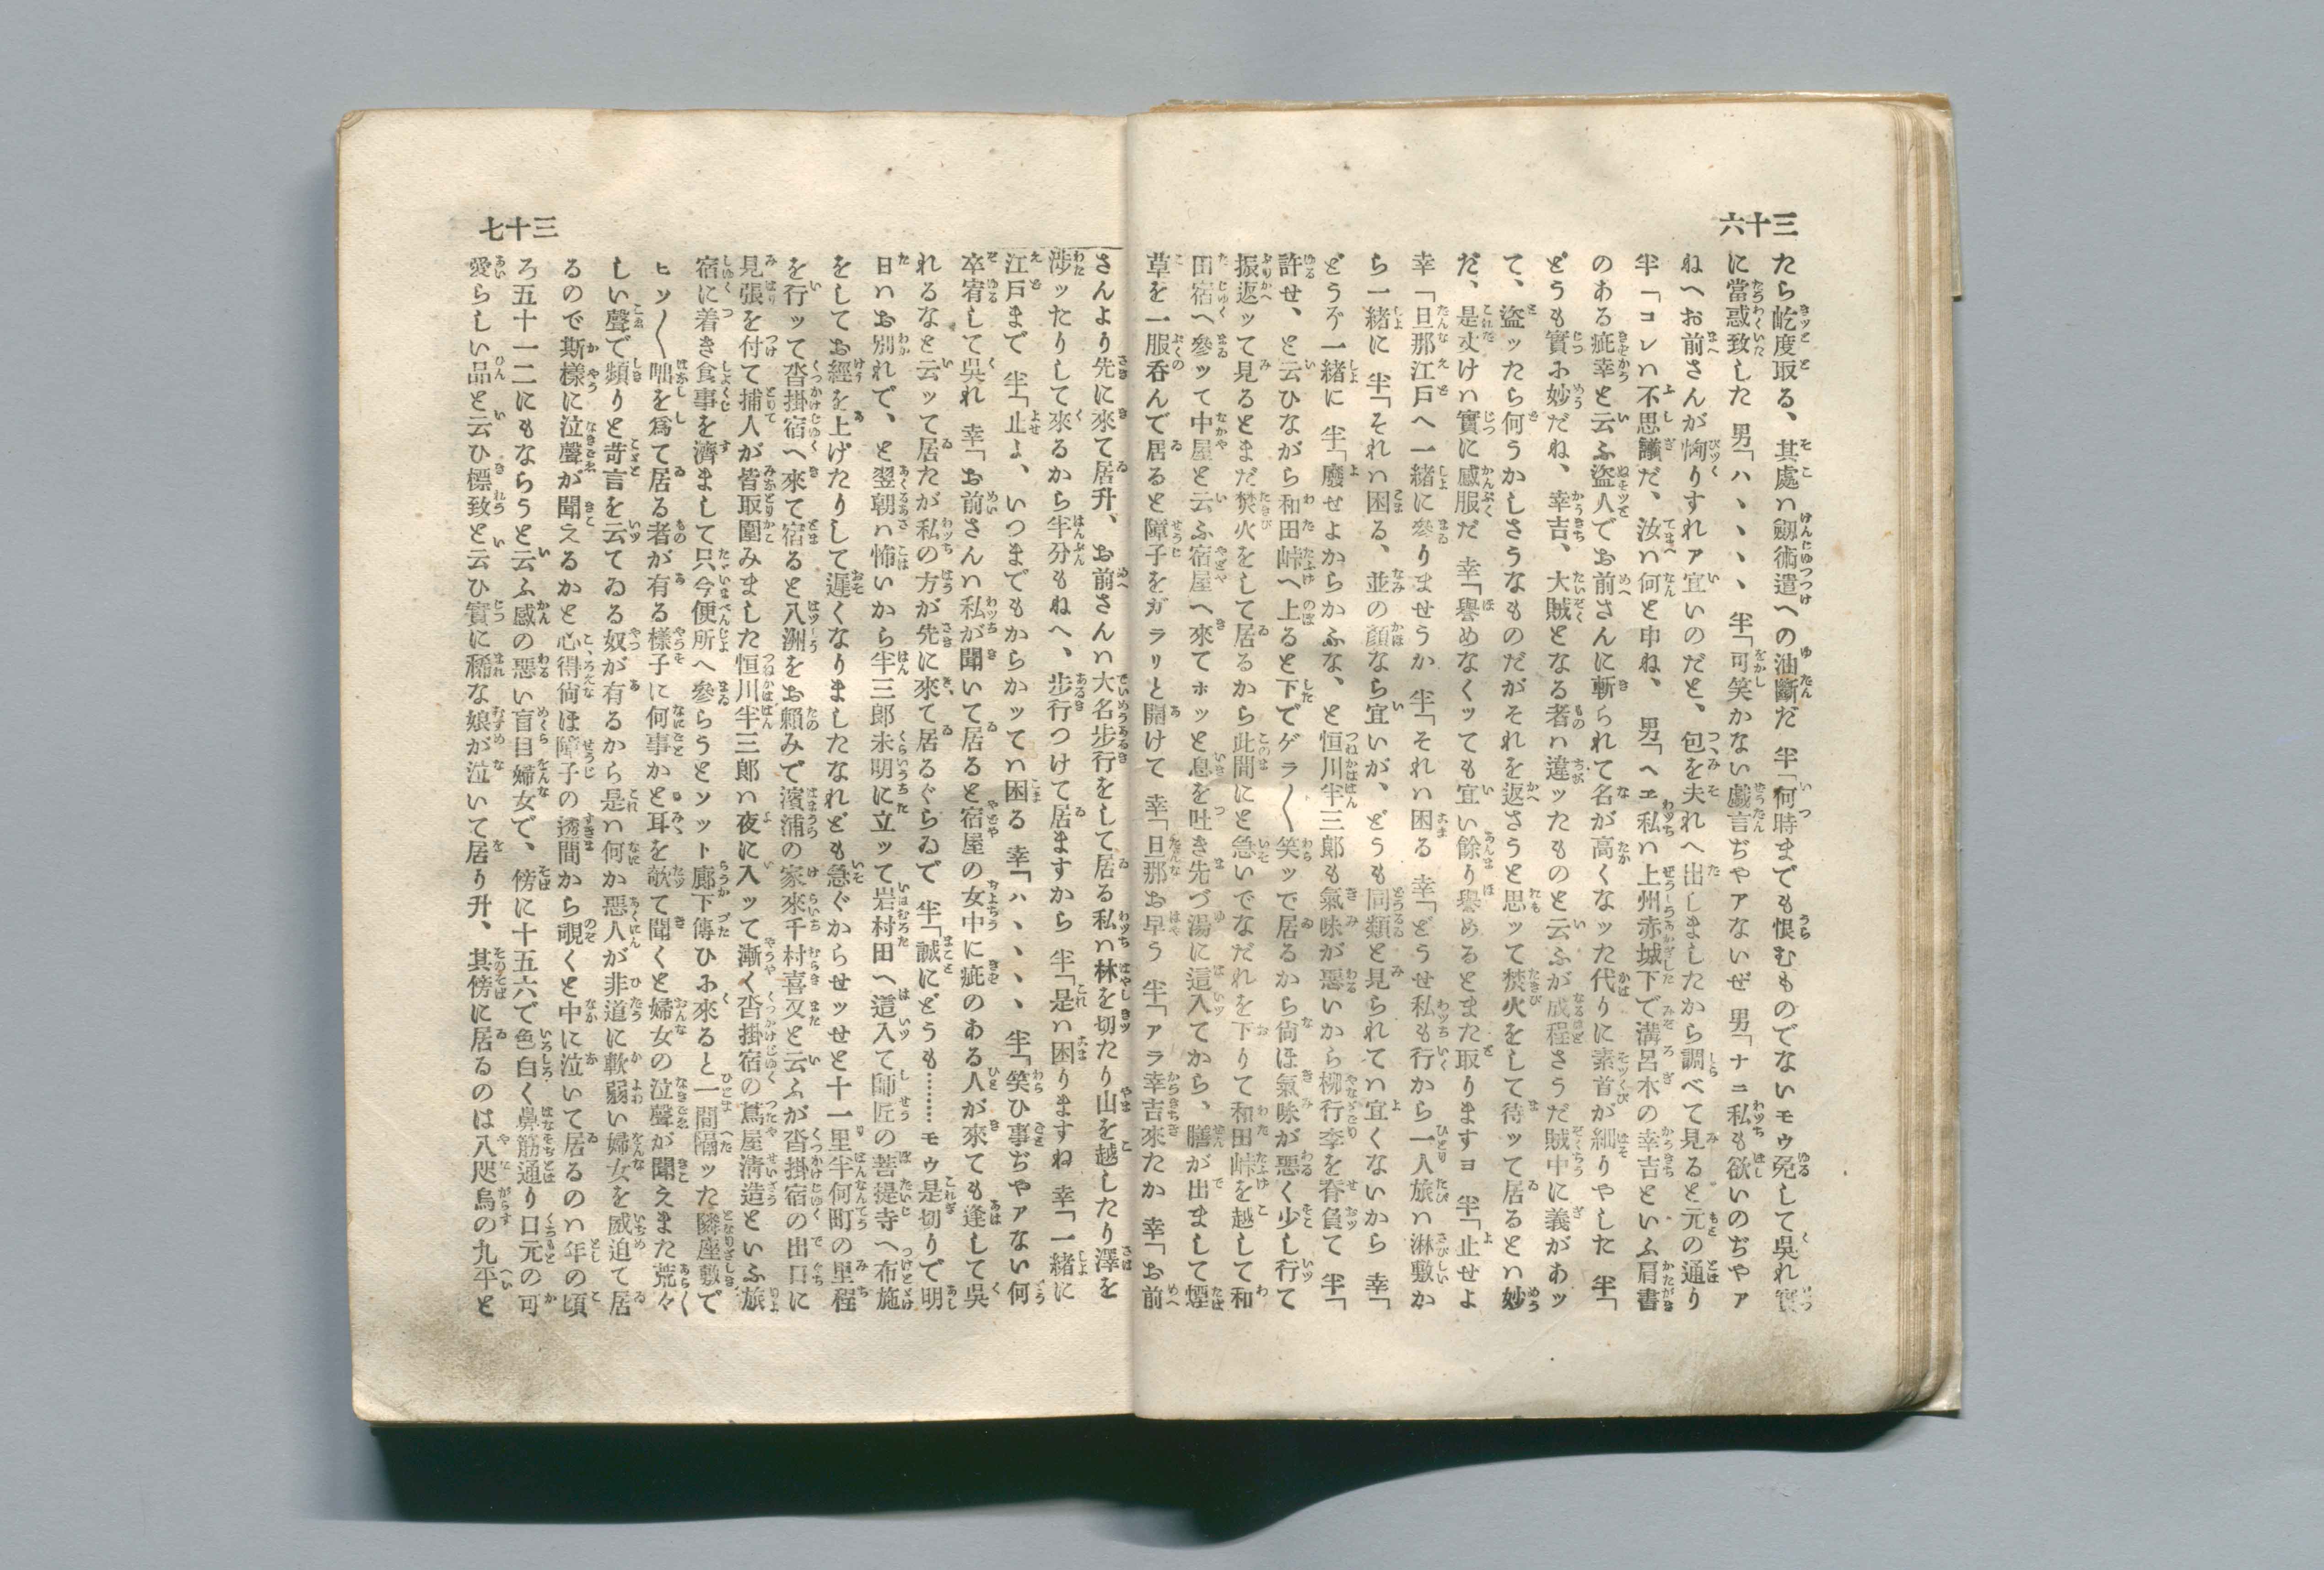 三十六
たら屹度取る、其處ハ劒術遣への油斷だ 半「何時までも恨むものでないモゥ免して呉れ實
に當惑致した 男「ハヽヽヽヽ 半「可笑かない戯言ぢやアないぜ 男「ナニ私も欲いのぢやァ
ねへお前さんが恟りすれァ宜いのだと、包を夫れへ出しましたから調べて見ると元の通り
半「コレハ不思議だ、汝ハ何と申ね、 男「ヘヱ私ハ上州赤城下で溝呂木の幸吉といふ肩書
のある疵幸と云ふ盗人でお前さんに斬られて名が高くなッた代りに素首が細りやした 半「
どうも實お妙だね、幸吉、大賊となる者ハ違ッたものと云ふが成程さうだ賊中に義があッ
て、盗ッたら何うかしさうなものだがそれを返さうと思ッて焚火をして待ッて居るとハ妙
だ、是丈けハ實に感服だ 幸「譽めなくッても宜い餘り譽めるとまた取りますヨ 半「止せよ
幸「旦那江戸へ一緒に參りませうか 半「それハ困る 幸「どうせ私も行から一人旅ハ淋敷か
ら一緒に 半「それハ困る、並の顔なら宜いが、どうも同類と見られてハ宜くないから 幸「
どうぞ一緒に 半「廢せよからかふな、と恒川半三郎も氣味が悪いから柳行李を脊負て 半「
許せ、と云ひながら和田峠へ上ると下でゲラ〱笑ッで居るから尙ほ氣味が悪く少し行て
振返ッて見るとまだ焚火をして居るから此間にと急いでなだれを下りて和田峠を越して和
田宿へ參ッて中屋と云ふ宿屋へ來てホッと息を吐き先づ湯に這入てから、膳が出まして煙
草を一服呑んで居ると障子をガラリと開けて 幸「旦那お早う 半「アラ幸吉來たか 幸「お前
三十七
さんより先に來て居升、お前さんハ大名歩行をして居る私ハ林を切たり山を越したり澤を
渉ッたりして來るから半分もねへ、歩行つけて居ますから 半「是ハ困りますね 幸「一緒に
江戸まで 半「止よ、いつまでもからかッてハ困る 幸「ハヽヽヽヽ 半「笑ひ事ぢやァない何
卒宥して呉れ 幸「お前さんハ私が聞いて居ると宿屋の女中に疵のある人が來ても逢して呉
れるなと云ッて居たが私の方が先に來て居るぐらゐで 半「誠にどうも………モゥ是切りで明
日ハお別れで、と翌朝ハ怖いから半三郎未明に立ッて岩村田へ這入て師匠の菩提寺へ布施
をしてお經を上げたりして遲くなりましたなれども急ぐからせッせと十一里半何町の里程
を行ッて沓掛宿へ來て宿ると八洲をお賴みで濱浦の家來千村喜又と云ふが沓掛宿の出口に
見張を付て捕人が皆取圍みました恒川半三郎ハ夜に入ッて漸く沓掛宿の蔦屋清造といふ旅
宿に着き食事を濟まして只今便所へ參らうとソット廊下傳ひお來ると一間隔ッた隣座敷で
ヒソ〱咄を爲て居る者が有る樣子に何事かと耳を欹て聞くと婦女の泣聲が聞えまた荒々
しい聲で頻りと苛言を云てゐる奴が有るから是ハ何か惡人が非道に軟弱い婦女を威迫て居
るので斯樣に泣聲が聞えるかと心得尙ほ障子の透間から覗くと中に泣いて居るのハ年の頃
ろ五十一二にもならうと云ふ感の悪い盲目婦女で、傍に十五六で色白く鼻筋通り口元の可
愛らしい品と云ひ標致と云ひ實に稀な娘が泣いて居り升、其傍に居るのは八咫烏の九平と